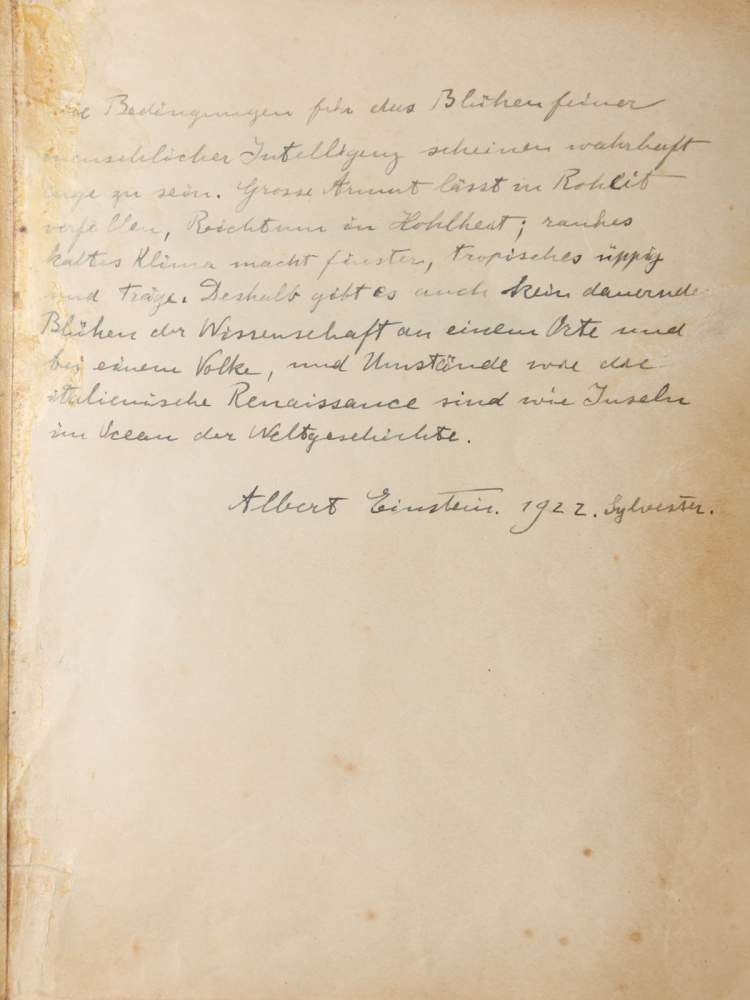 Die Bedingungen für das Blühen feiner
menschlicher Intelligenz scheinen wahrhaft
enge zu sein. Grosse Armut lässt in Roheit
verfallen, Reichtum in Hohlheit; rauhes
kaltes Klima macht finster, tropisches üppig
und träge. Deshalb gibt es auch kein dauerndes
Blühen der Wissenschaft an einem Orte und
bei einem Volke, und Umstände wie die
italienische Renaissance sind wie Inseln
im Ocean der Weltgeschichte.
Albert Einstein. 1922. Sylvester.